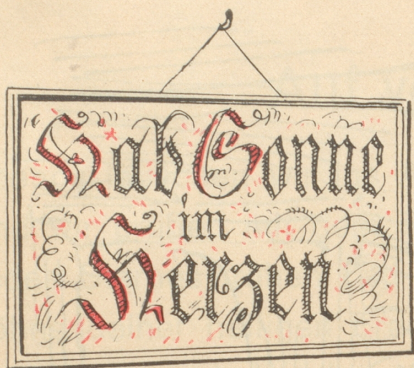 Hab Sonne
im
Herzen